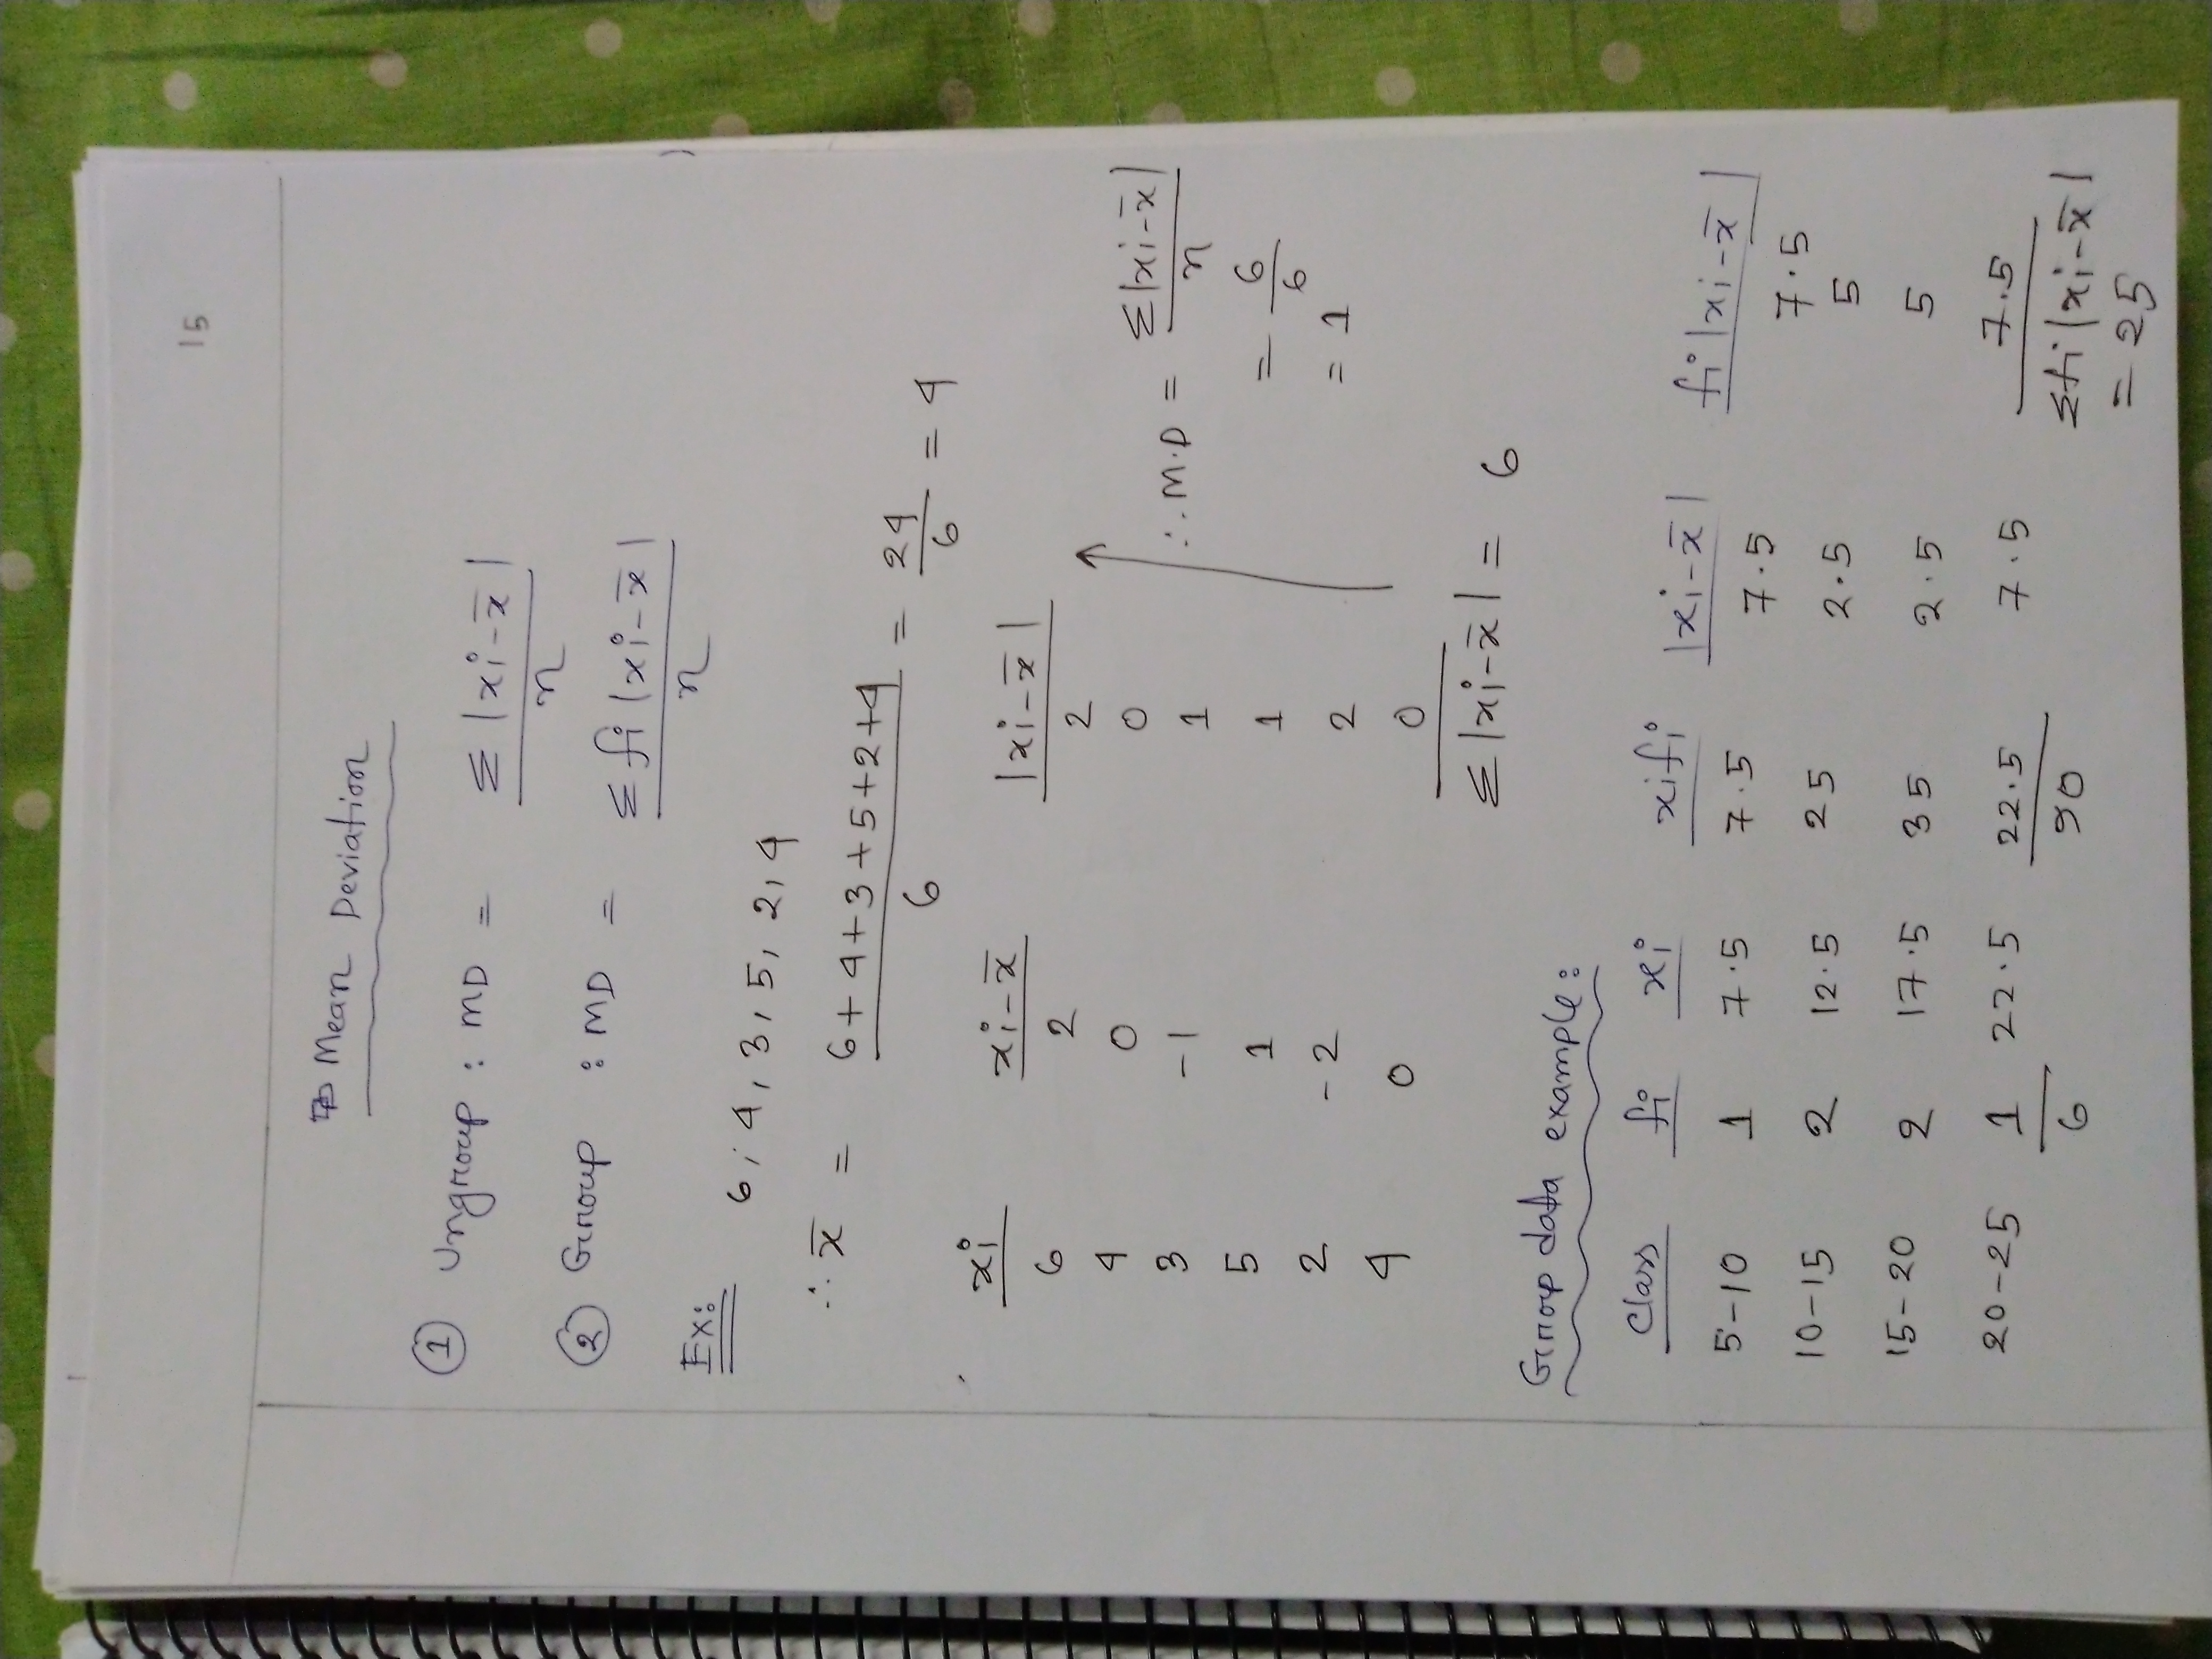 15
Mean Deviation
① Ungroup : MD = Σ|xi-x̄| / n
② Group : MD = Σfi|xi-x̄| / n
Ex: 6, 4, 3, 5, 2, 4
∴ x̄ = 6+4+3+5+2+4 / 6 = 24/6 = 4
xi xi-x̄ |xi-x̄|
6 2 2
4 0 0
3 -1 1
5 1 1
2 -2 2
4 0 0
Σ|xi-x̄| = 6
∴ M.D = Σ|xi-x̄| / n
= 6/6
= 1
Group data example:
Class fi xi xifi |xi-x̄| fi|xi-x̄|
5-10 1 7.5 7.5 7.5 7.5
10-15 2 12.5 25 2.5 5
15-20 2 17.5 35 2.5 5
20-25 1 22.5 22.5 7.5 7.5
6 90 Σfi|xi-x̄|
= 25